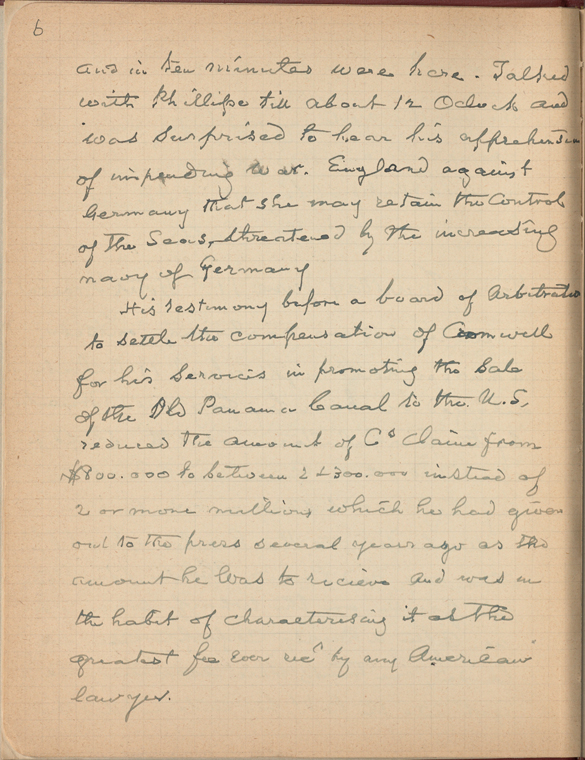 6
and in ten minutes were here. Talked
with Phillipe till about 12 Oclock and
was surprised to hear his apprehension
of impending war. England against
Germany that she may retain the Control
of the Seas, threatened by the increasing
navy of Germany
His testimony before a board of Arbitration
to settle the compensation of Cromwell
for his Services in promoting the Sale
of the Old Panama Canal to the U.S,
reduced the amount of Cs Claim from
$800.000 to between 2 & 300.000 instead of
2 or more millions which he had given
out to the press several years ago as the
amount he was to recieve and was in
the habit of characterising it as the
greatest fee ever recd by any American
lawyer.